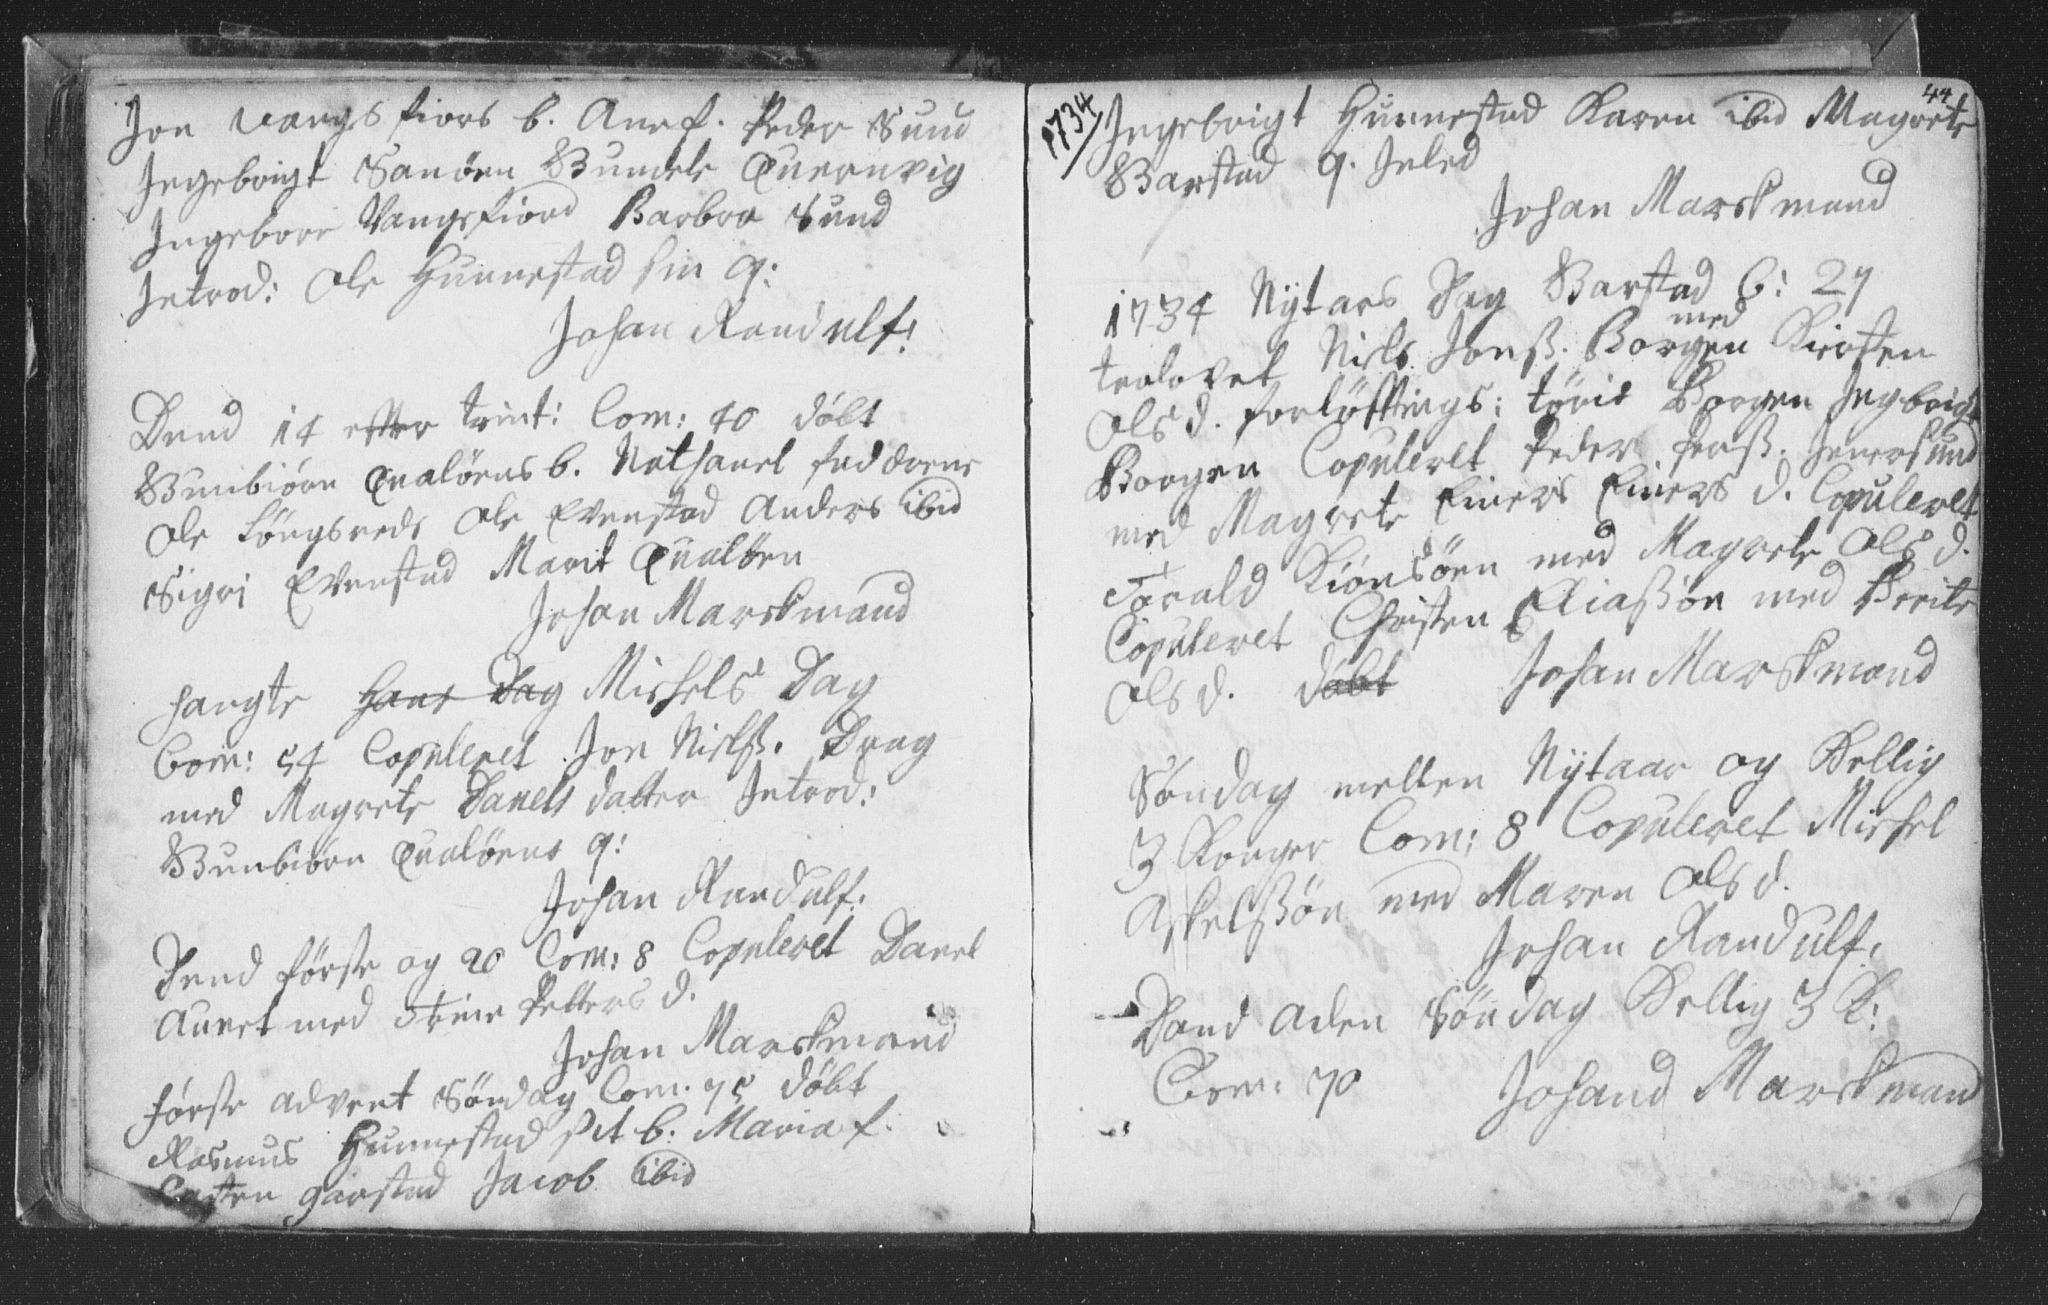 Jon Vangsfiors b. Ane f. Peder Sund
Ingebrigt Sanöen Bundele Quernvig
Ingebore Vangsfiord Barbra Sund
Introd: Ole Hunnestad sin q:
Johan Randulf:
Dend 14 etter trint: Com: 40 döbt
Bunbiörn Qualöens b. Nathanel faddrene
Ole Löngsneds Ole Evenstad Anders ibid
Sigri Evenstad Marit Qualöen
Johan Marskmand
hangte Hans Dag Michels Dag
Com: 54 Copuleret Jon Nielss. Drag
med Magrete Danels datter Introd:
Bunbiörn Qualöens q:
Johan Randulf:
Dend förste og 20 Com: 8 Copuleret Danel
Aunet med Trine Petters d.
Johan Marskmand
förste advent Söndag Com: 75 döbt
Rasmus Hunnestad Pit b. Maria f.
Casten garstad Jacob ibid
44
1734
Ingebrigt Hunnestad Karen ibid Magrete
Barstad q. Inled
Johan Marskmand
1734 Nÿtars Dag Barstad C: 27
trolovet Niels Jonss. Borgen med Kirsten
Ols d. forlöftings: törris Borgen Ingbrigt
Borgen Copuleret Peder Perss. Inersund
med Magrete Einers Einers d. Copuleret
Torald Kiönsöen med Magrete Ols d.
Copuleret Christen Eliassön med Berite
Ols d. döbt Johan Marskmand
Söndag mellen Nÿtaar og Hellig
3 Konger Com: 8 Copuleret Michel
Askelssön med Maren Ols d.
Johan Randulf:
Dand aden Söndag Hellig 3 K:
Com: 70 Johand Marskmand